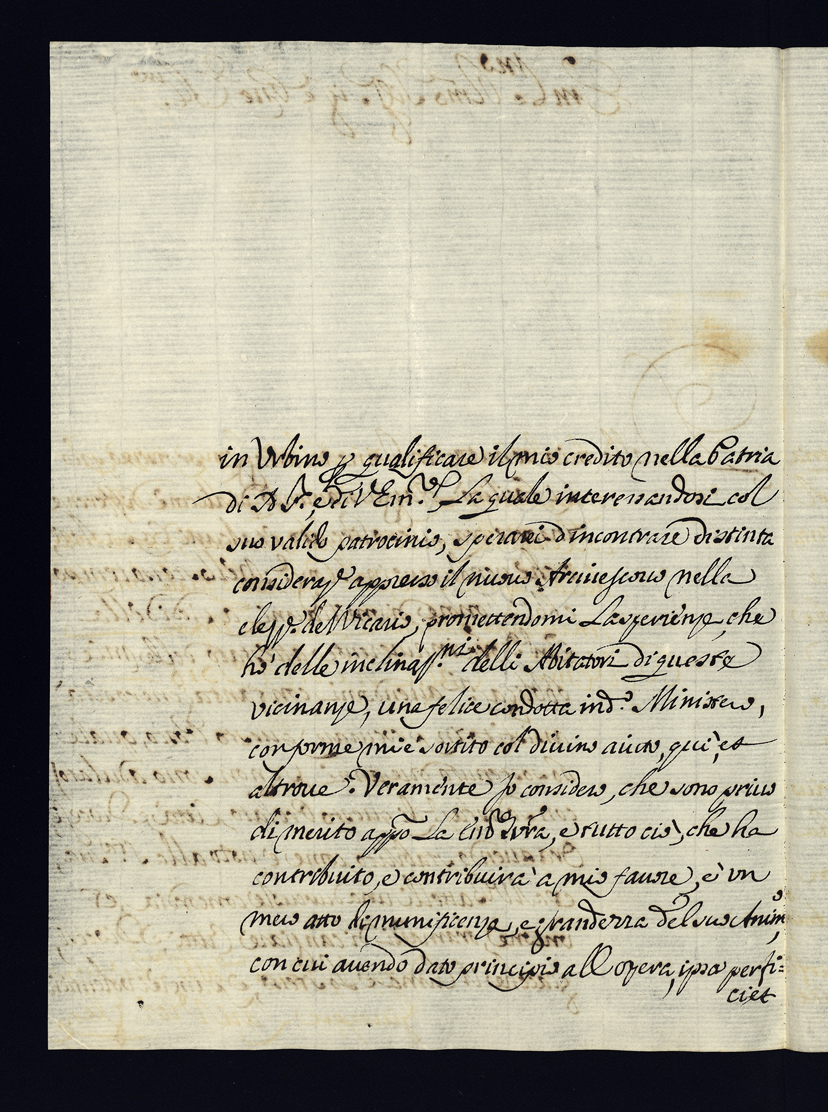 in Urbino p qualificare il mio credito nella Patria
di N. S., e di V. Em.ª, La quale interessandosi col
suo valido patrocinio, sperarei d'incontrare distinta
consideraz.e appresso il nuovo Arcivescovo nella
del Vicario, promettendomi L'asperienze, che
hò delle inclinaz.ni delli Abitatori di queste
vicinanze, una felice condotta in d.º Ministero,
conforme mi è sortito col divino aiuto, quì, et
altrove. Veramente Io considero, che sono privo
di merito app.o La Em.ª Vr̃a, e tutto ciò, che ha
contribuito, e contribuirà à mio favore, è un
mero atto di munificenza, e grandezza del suo Animo,
con cui avendo dato principio all'opera, ipsa perfi=
ciet